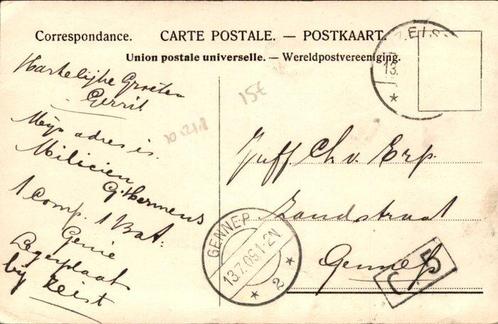 Correspondance.
CARTE POSTALE. — POSTKAART.
Union postale universelle. — Wereldpostvereeniging.
Hartelijke Groeten
Gerrit
Mijn adres is.
Milicien
G. Hermens
1 Comp. 1 Bat:
Genie
Legerplaats
bij Zeist
15€
Juff Ch v. Erp.
Zandstraat
Gennep
ZEIS
13.
GENNEP
13.7.09.1-2N
2